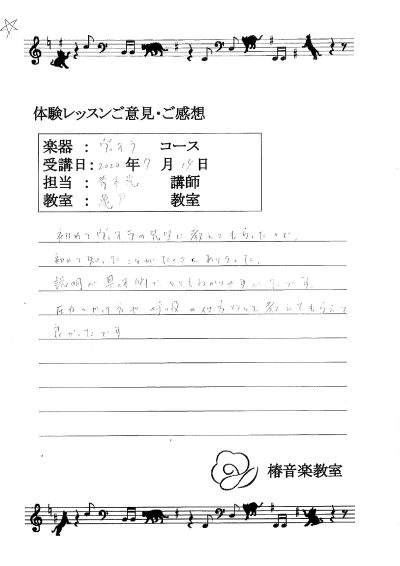 体験レッスンご意見・ご感想
楽器 : ヴィオラ コース
受講日: 2020 年 7 月 14 日
担当 : 講師
教室 : 亀戸 教室
初めてヴィオラの先生に教えてもらったので、
初めて知ったことがたくさんありました。
説明が具体的で、とてもわかりやすかったです。
呼吸の仕方 教えてもらえて
良かったです
椿音楽教室